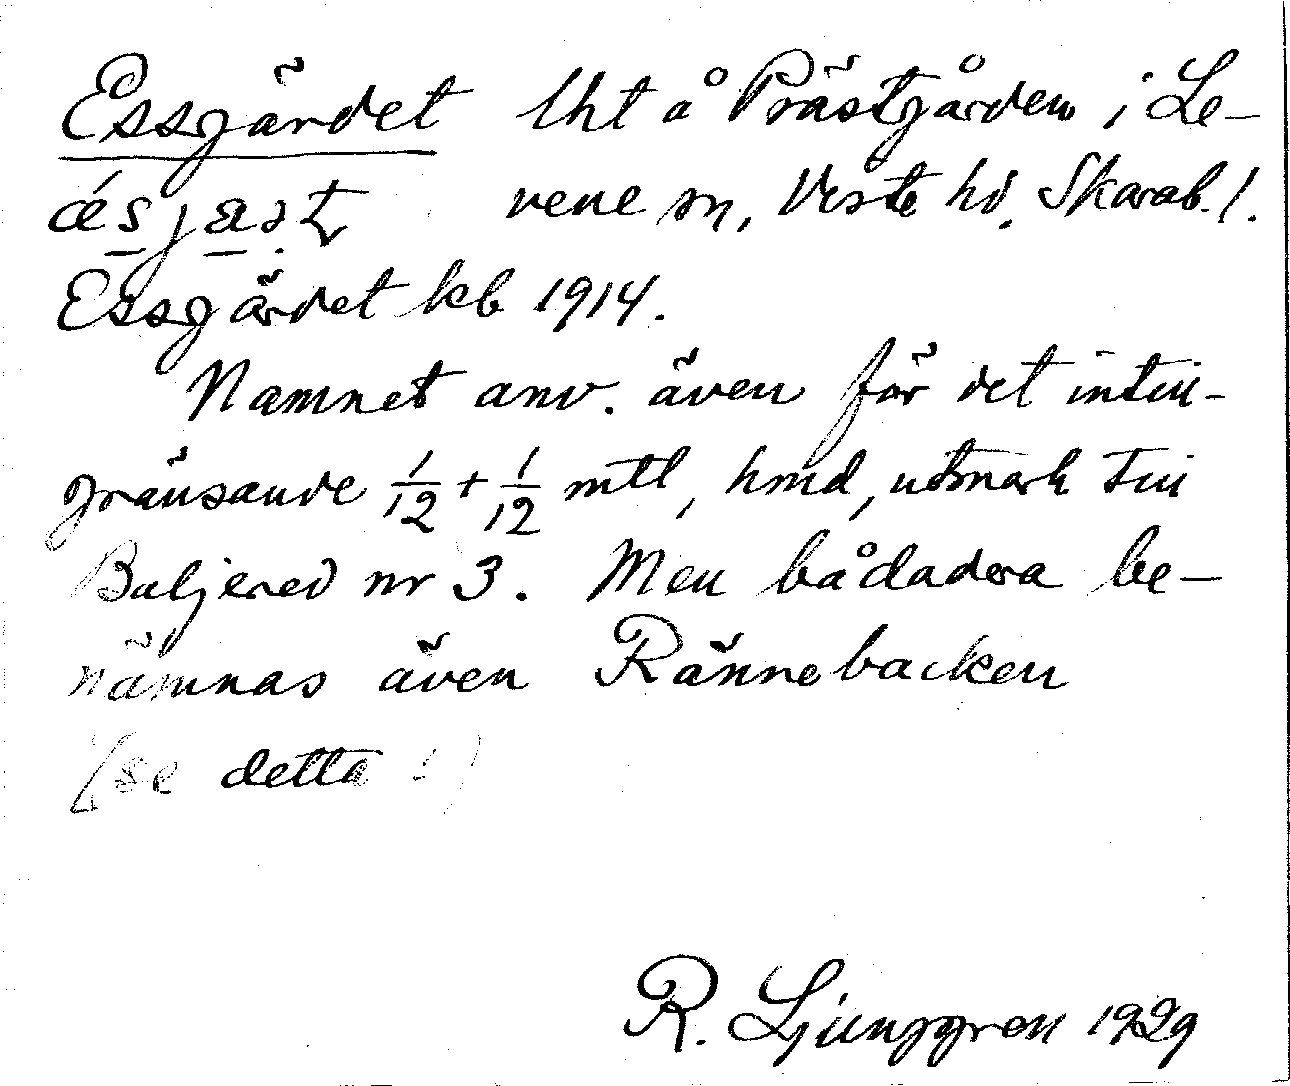 Essgärdet lht å Prästgården i Le-
vene sn, Viste hd. Skarab. l.
Essgärdet kb 1914.
Namnet anv. även för det intill-
gränsande 1/12 + 1/12 mtl, hmd, utmark till
Baljered nr 3. Men bådadera be-
nämnas även Rännebacken
(se detta!)
R. Ljunggren 1929